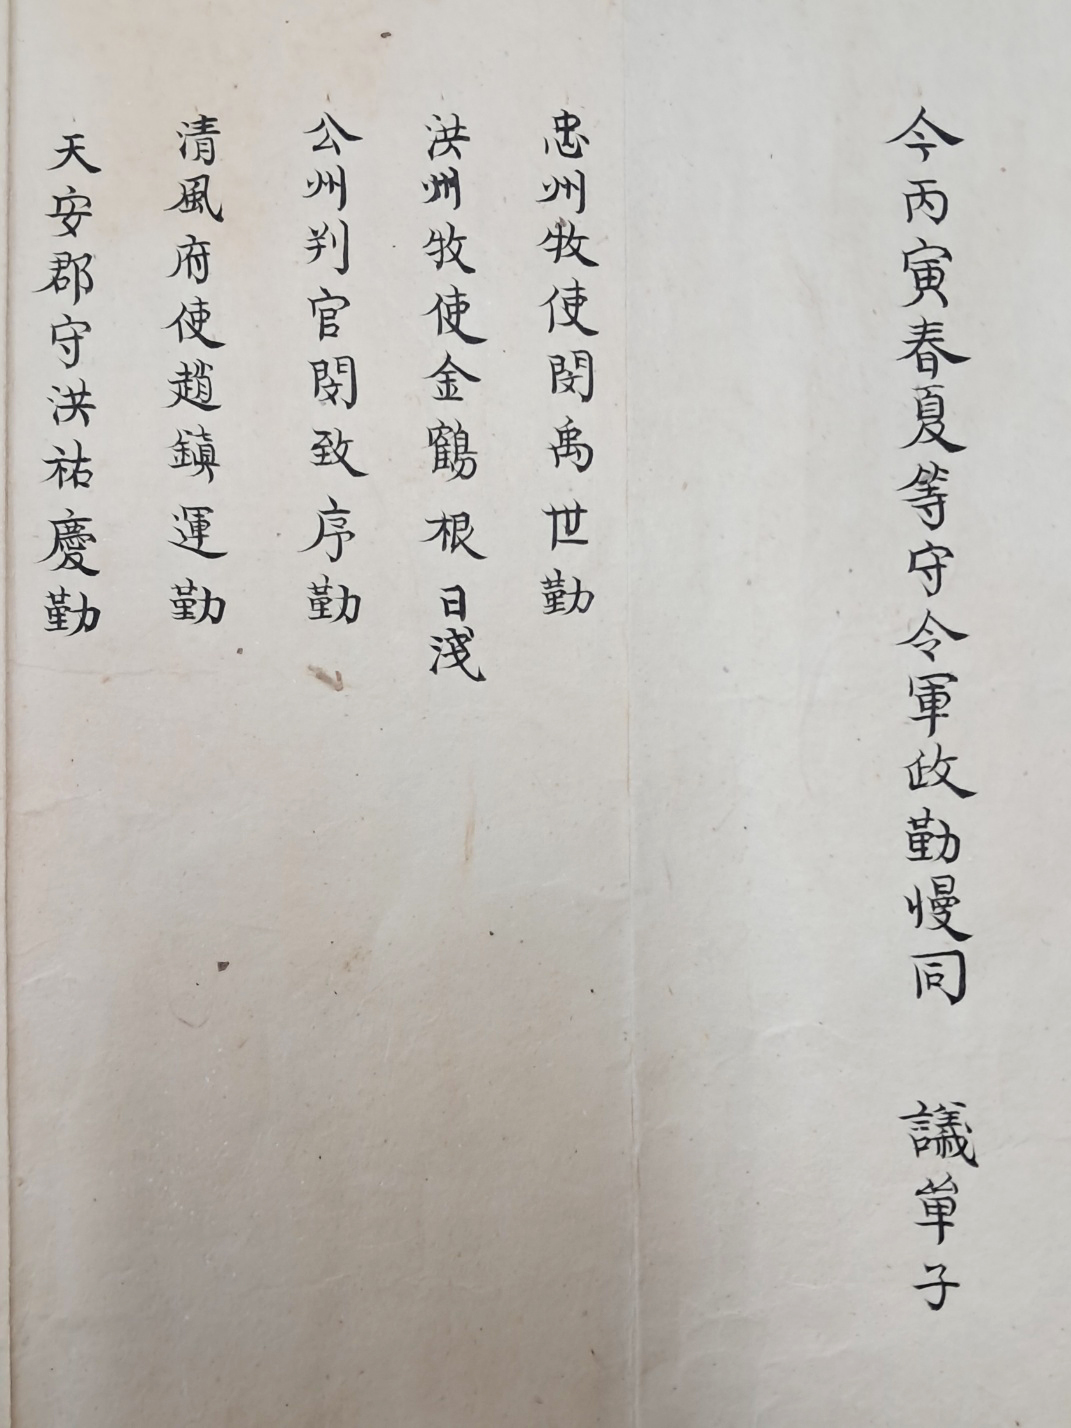 今丙寅春夏等守令軍政勤慢同 議單子
忠州牧使閔禹世勤
洪州牧使金鶴根日淺
公州判官閔致序勤
清風府使趙鎮運勤
天安郡守洪祐慶勤